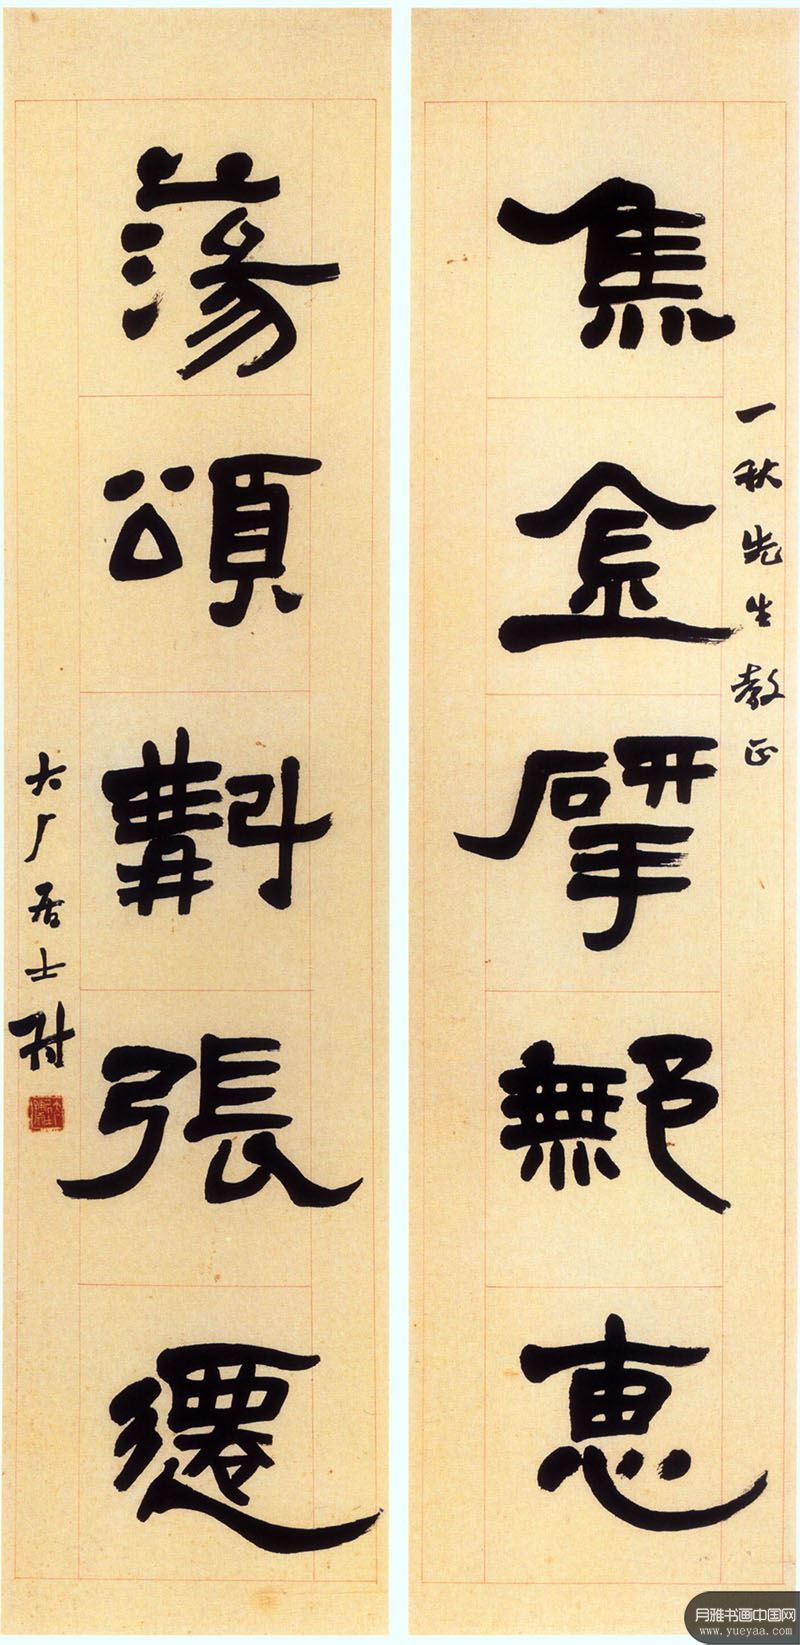 一秋先生教正
焦金揅鄦惠
蕩頌斠張遷
大厂居士
月雅书画中国网
www.yueyaa.com